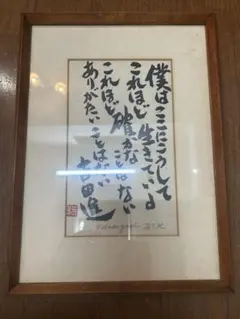 僕はここにこうして
これほど生きている
これほど確かな
ことはない
これほど
ありがたいことはない